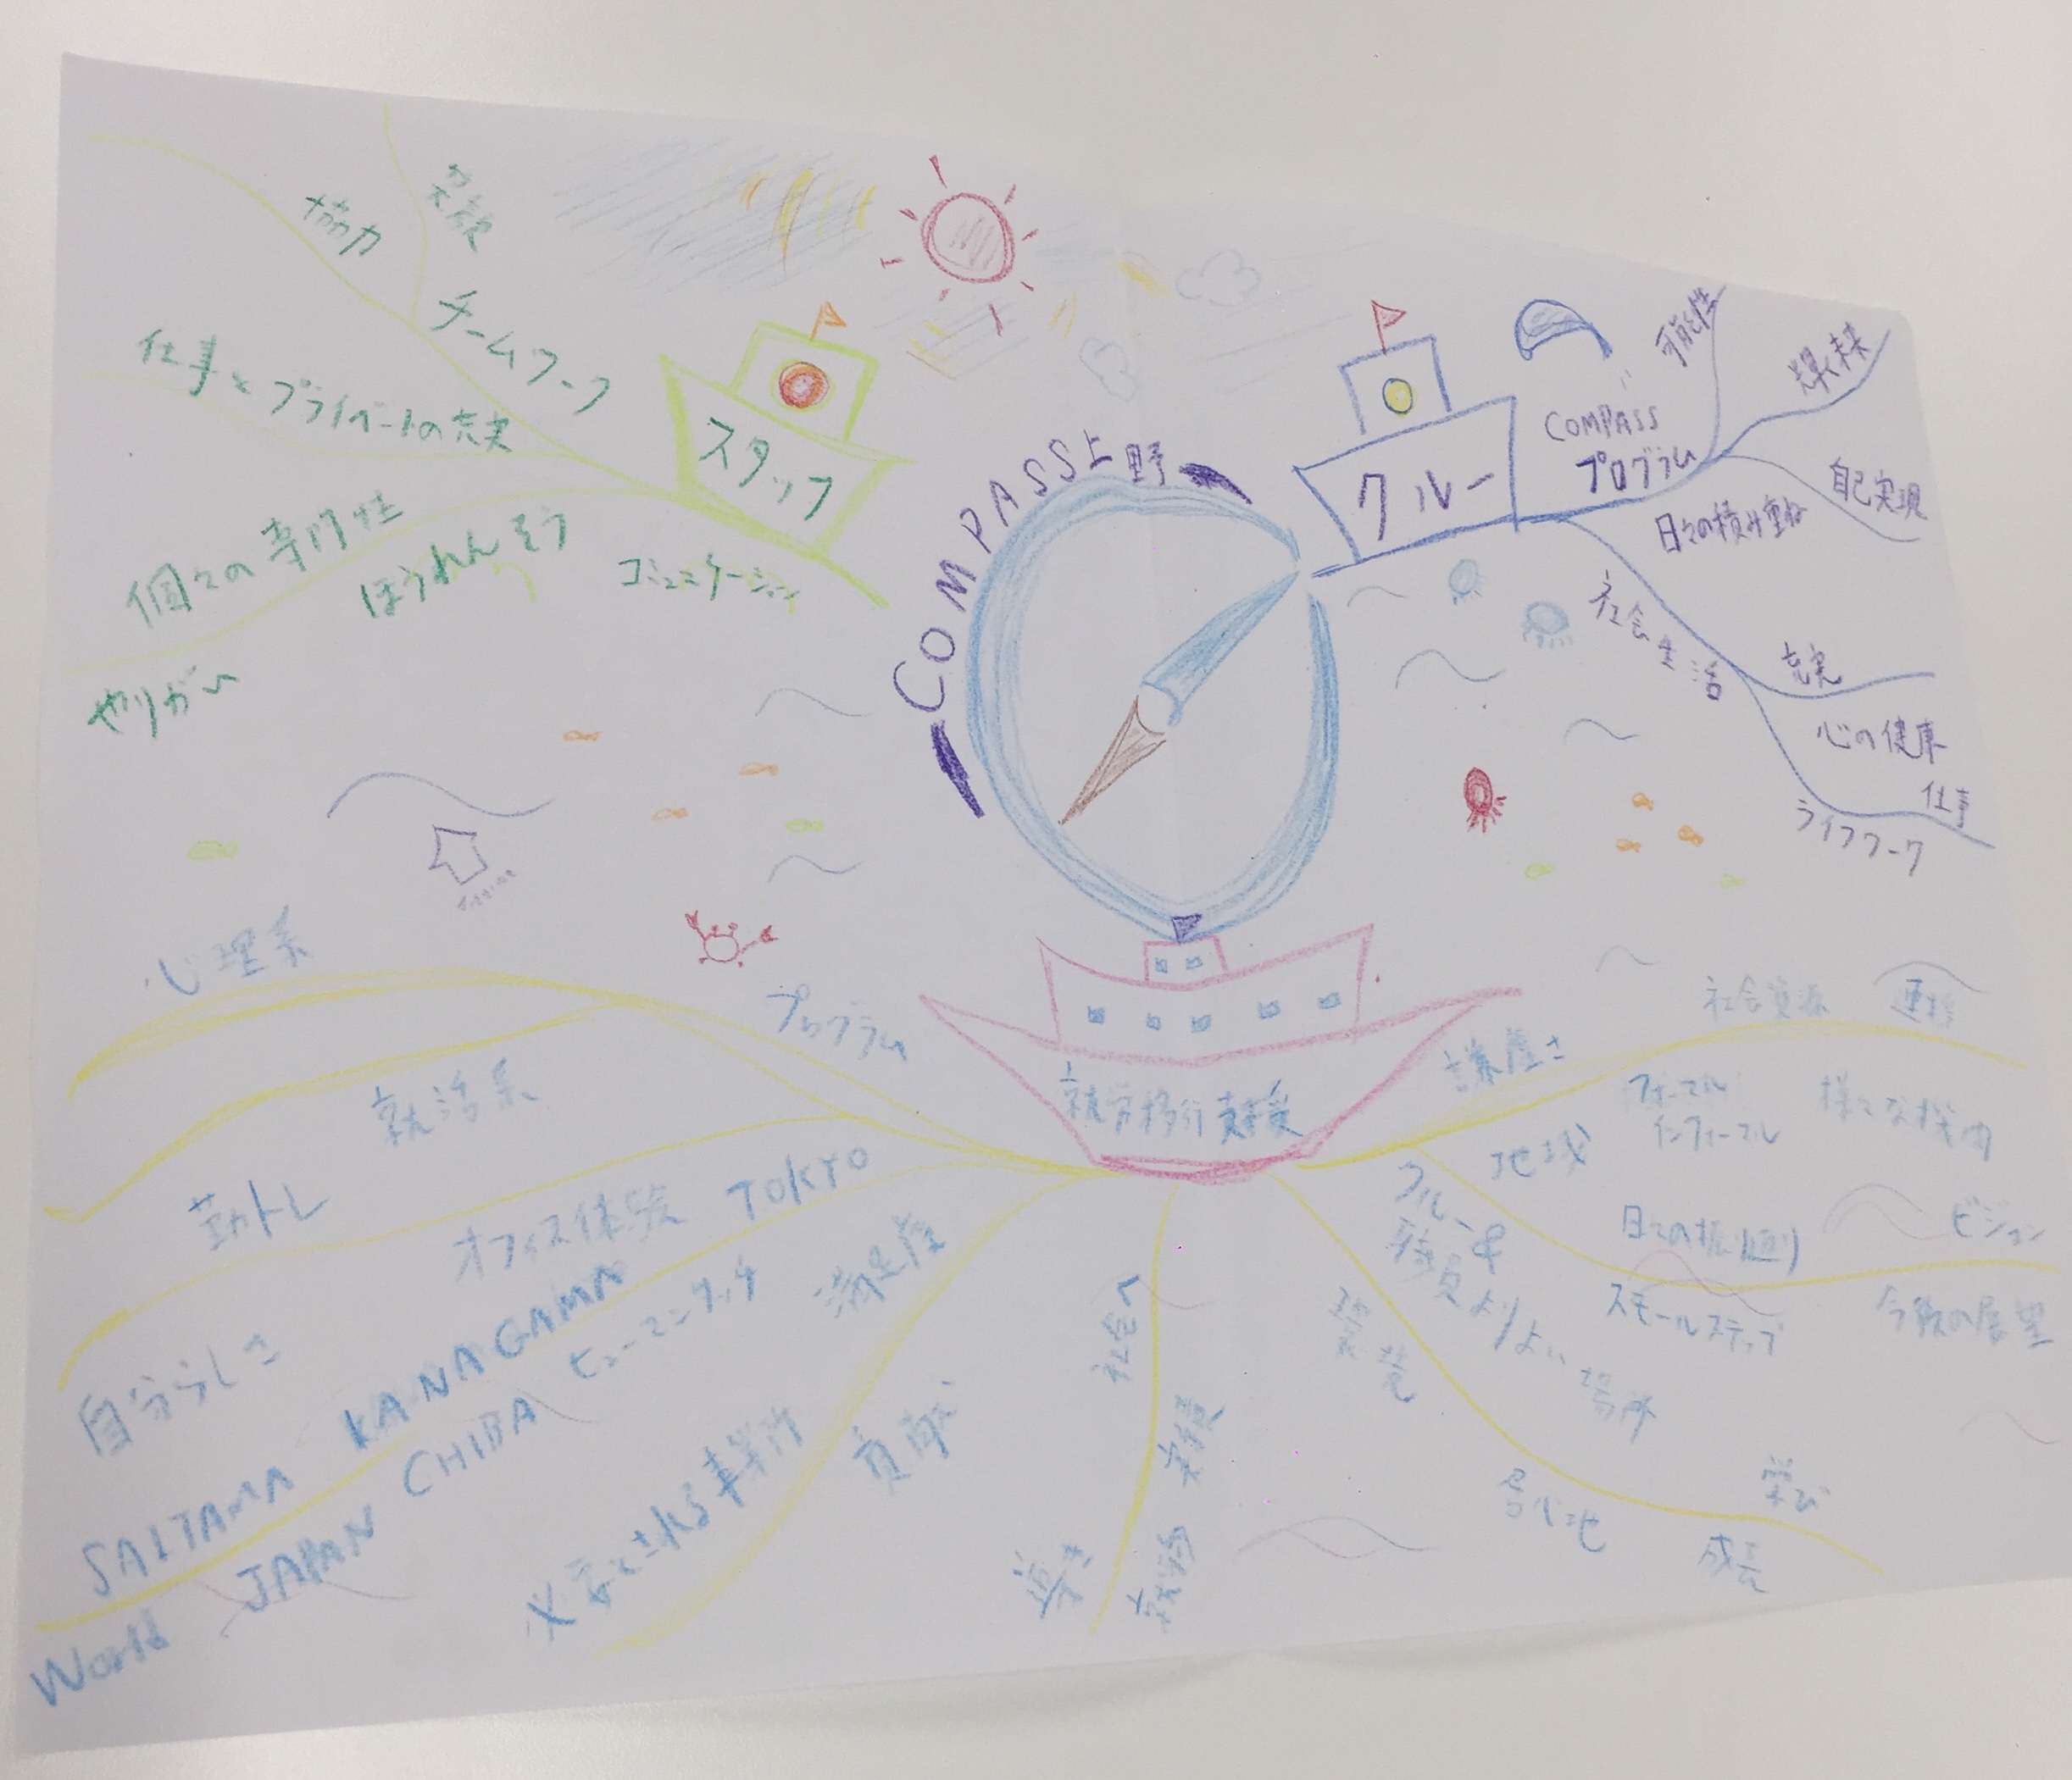 協力
貢献
チームワーク
仕事とプライベートの充実
個々の専門性
ほうれんそう
コミュニケーション
やりがい
スタッフ
COMPASS上野
クルー
COMPASS
プログラム
可能性
輝く未来
自己実現
日々の積み重ね
社会生活
充実
心の健康
仕事
ライフワーク
心理系
プログラム
就活系
勤トレ
オフィス体験
自分らしさ
TOKYO
KANAGAMA
SAITAMA
CHIBA
JAPAN
World
ヒューマンタッチ
満足度
必要とされる事業所
貢献
就労移行支援
社会へ
実績
導き
謙虚さ
社会資源
連携
フォーマル
インフォーマル
様々な機関
地域
クルー&
職員よりよい場所
日々の振り返り
ビジョン
スモールステップ
今後の展望
居心地
学び
成長